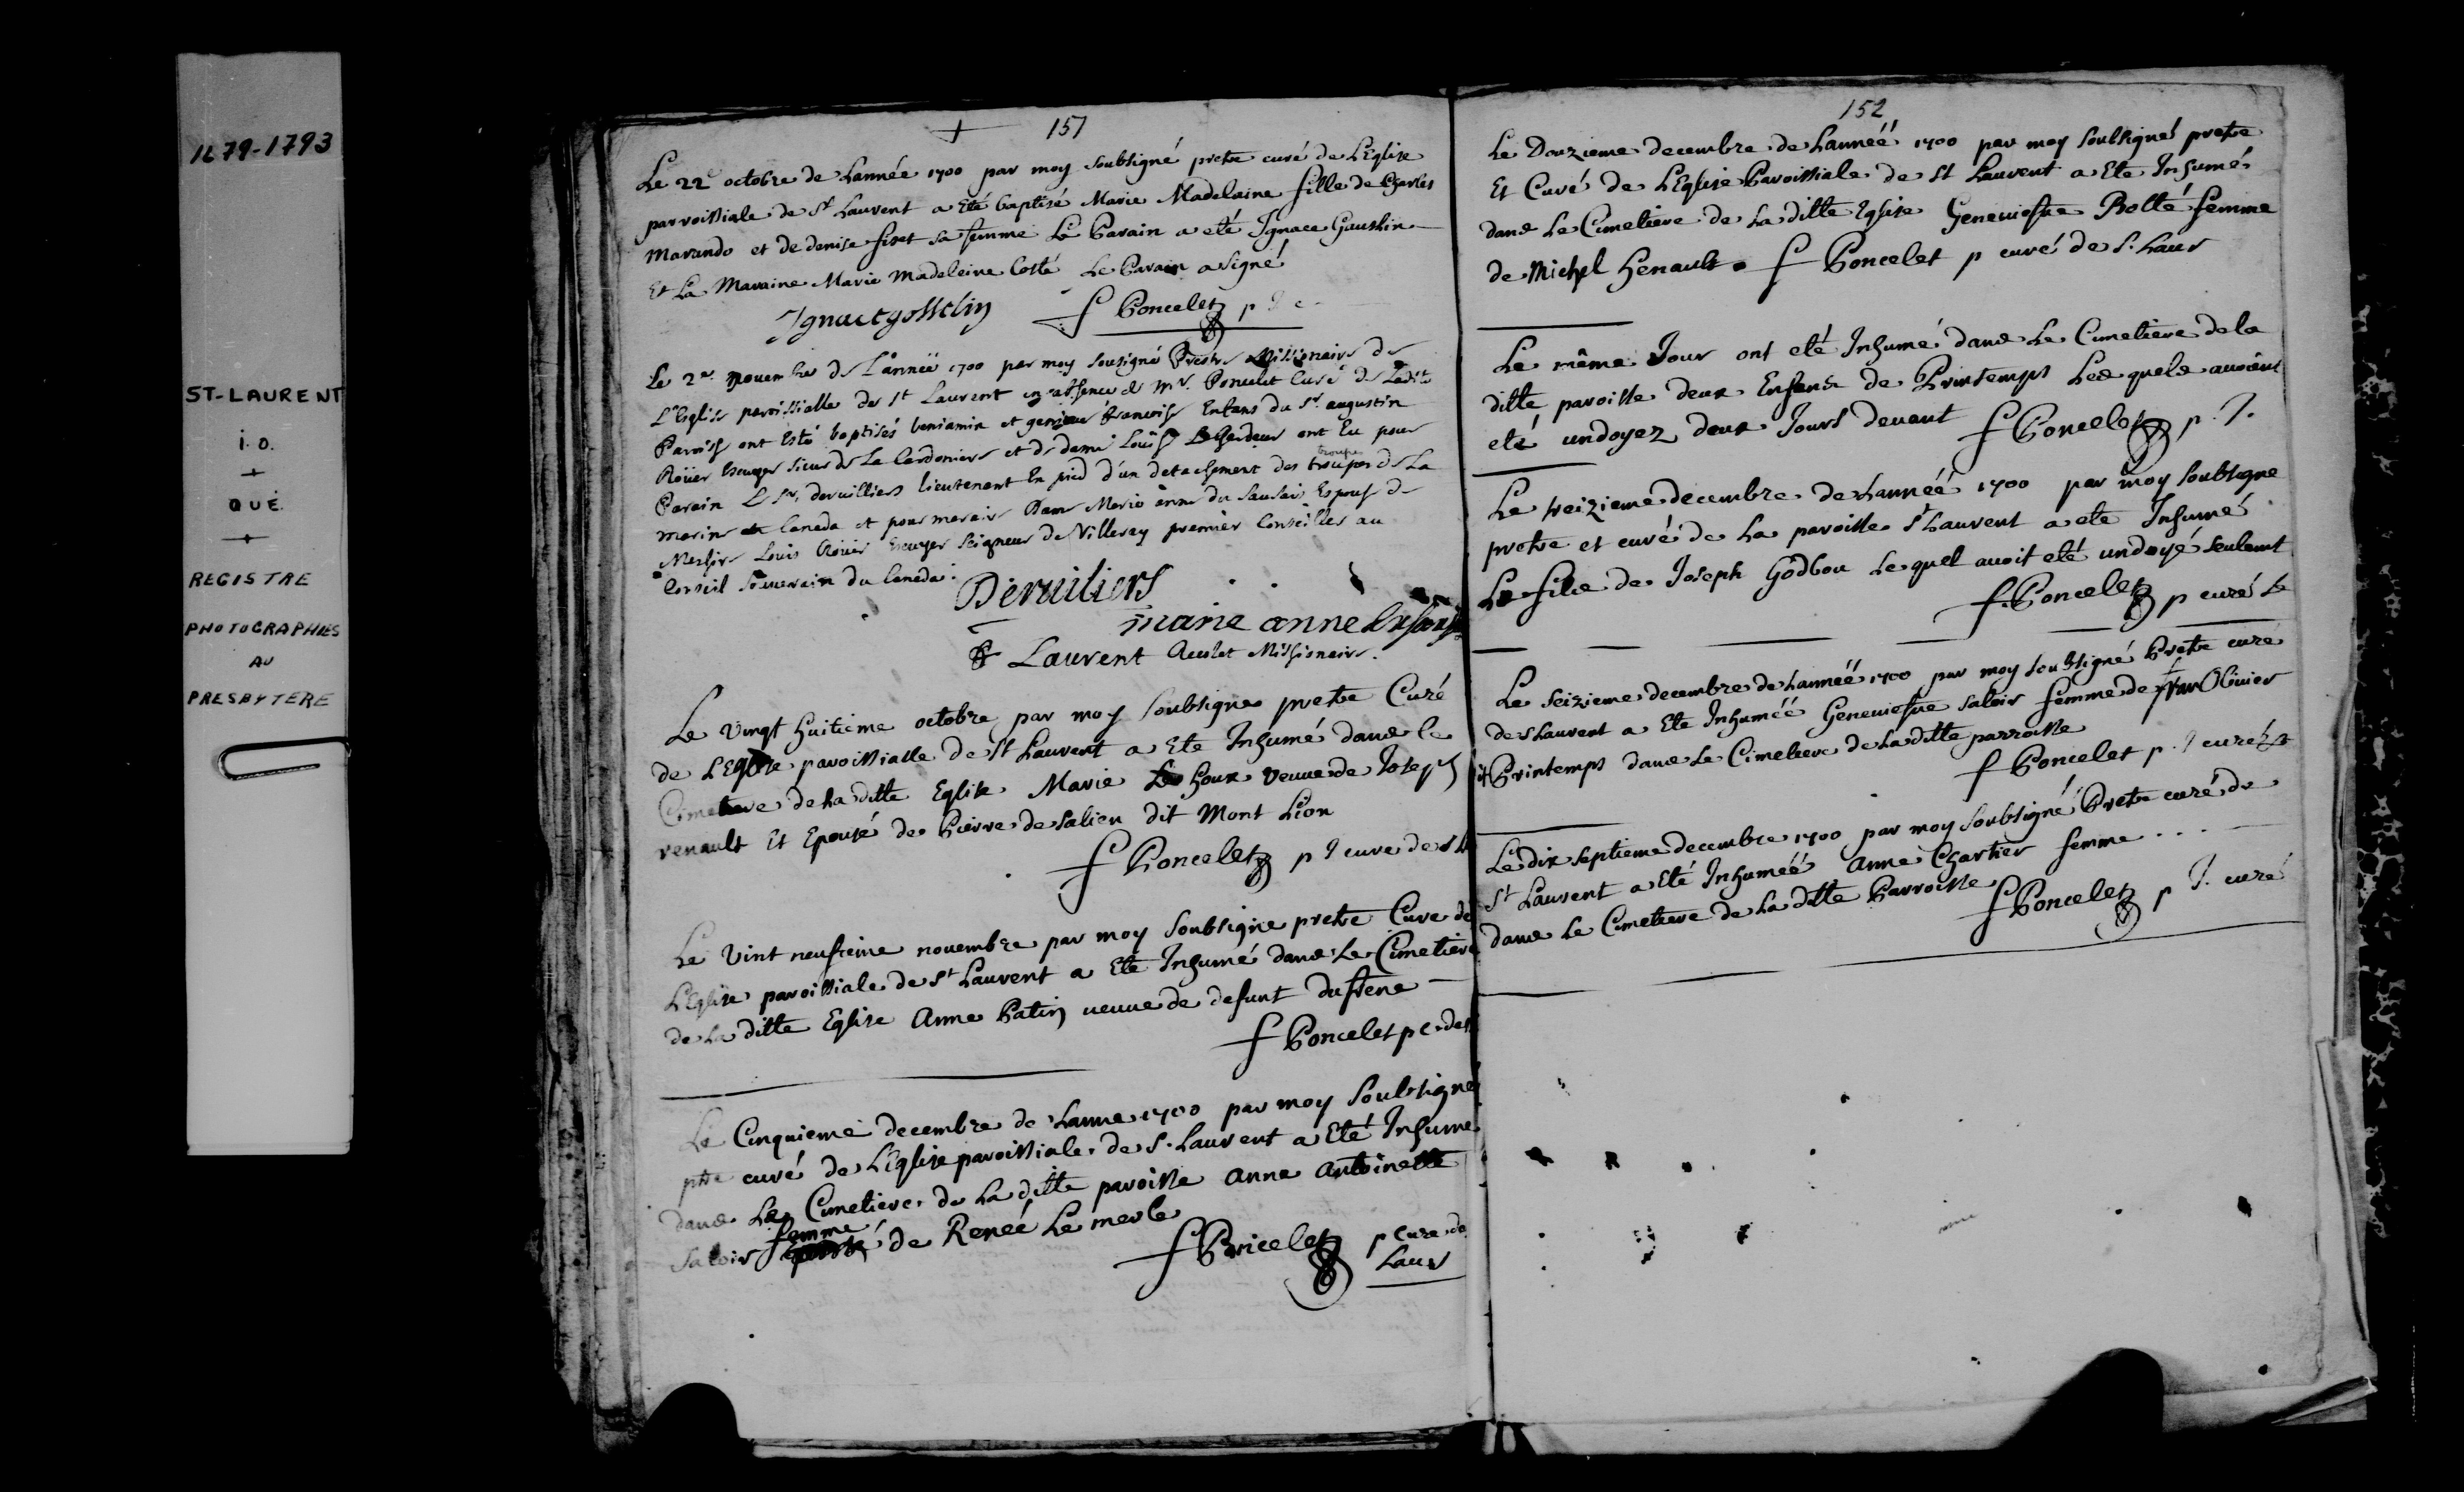 1679-1793
ST-LAURENT
i.o.
+
QUÉ.
+
REGISTRE
PHOTOGRAPHIES
AU
PRESBYTERE
151
Le 22e octobre de Lannée 1700 par moy soubsigné pretre curé de L'Eglise
parroissiale de St Laurent a Eté baptisé Marie Madelaine fille de Charles
Marando et de denise fiset sa femme Le Parain a eté Ignace Gausslin
Et La Maraine Marie Madeleine Costé Le Parain a signé
Ignace gosselin f Poncelet p
Le 2e. Nouembre de L'année 1700 par moy sousigné Prestre Missionaire de
L'Eglise paroissialle de St Laurent en absence de Mr. Poncelet Curé de Ladite
Paroisse ont Esté baptisés beniamin et françoise Enfans du Sr. augustin
Roüer Escuyer sieur de La Cardoniere et de dame Louise Legardeur ont Eu pour
Parain Le Sr. deruilliers lieutenant En pied d'un detachement des troupes de La
marine Canada et pour maraine Dame Marie anne du Saussay Espouse de
Messire Louis Roüer Escuyer Seigneur de Villeray premier Conseiller au
Conseil Souuerain du Canada.
Deruiliers
marie anne
Laurent Missionaire.
Le Vingt huitieme octobre par moy soubsigné pretre Curé
de L'Eglise paroissialle de St Laurent a Eté Inhumé dans le
Cimetiere de La ditte Eglise Marie Le houx veuue de Joseph
renault Et Epousé de Pierre de salien dit Mont Lion
f Poncelet p J cure de
Le Vint neufieme nouembre par moy soubsigné pretre Curé de
L'Eglise paroissiale de St Laurent a Eté Inhumé dans Le Cimetiere
de La ditte Eglise Anne Patin ueuue de defunt dufrene
f Poncelet p c de
Le Cinquieme decembre de Lanne 1700 par moy soubsigné
ptre curé de L'Eglise paroissiale de S. Laurent a Eté Inhumé
dans Le Cimetiere de La ditte paroisse anne antoinette
saloir femme de Reneé Le merle
f Poncelet p cure de
Laur
152
Le Douzieme decembre de Lanneé 1700 par moy soubsigné pretre
Et Curé de L'Eglise Paroissiale de St Laurent a Ete Inhumé
dans Le Cimetiere de La ditte Eglise Geneuiefue Rotté femme
de Michel henault f Poncelet p curé de S. Laur
Le même Jour ont eté Inhumé dans Le Cimetiere de la
ditte paroisse deux Enfans de Printemps Les quels auoient
eté undoyez deux Jours deuant f Poncelet p. J.
Le treizieme decembre de Lanneé 1700 par moy soubsigne
pretre et curé de La paroisse St Laurent a ete Inhumé
Le fils de Joseph Godbou Le quel auoit eté undoyé seulemt
f Poncelet p curé
Le seizieme decembre de Lanneé 1700 par moy soubsigné Pretre curé
de S Laurent a Ete Inhumeé Geneuiefue saloir femme de fran Oliuier
dit Printemps dans Le Cimetiere de La ditte parroisse
f Poncelet p. J curé
Le dix septieme decembre 1700 par moy soubsigné Pretre curé de
St Laurent a Eté Inhumeé Anne Chartier femme . . .
dans Le Cimetiere de La ditte Parroisse f Poncelet p J. curé